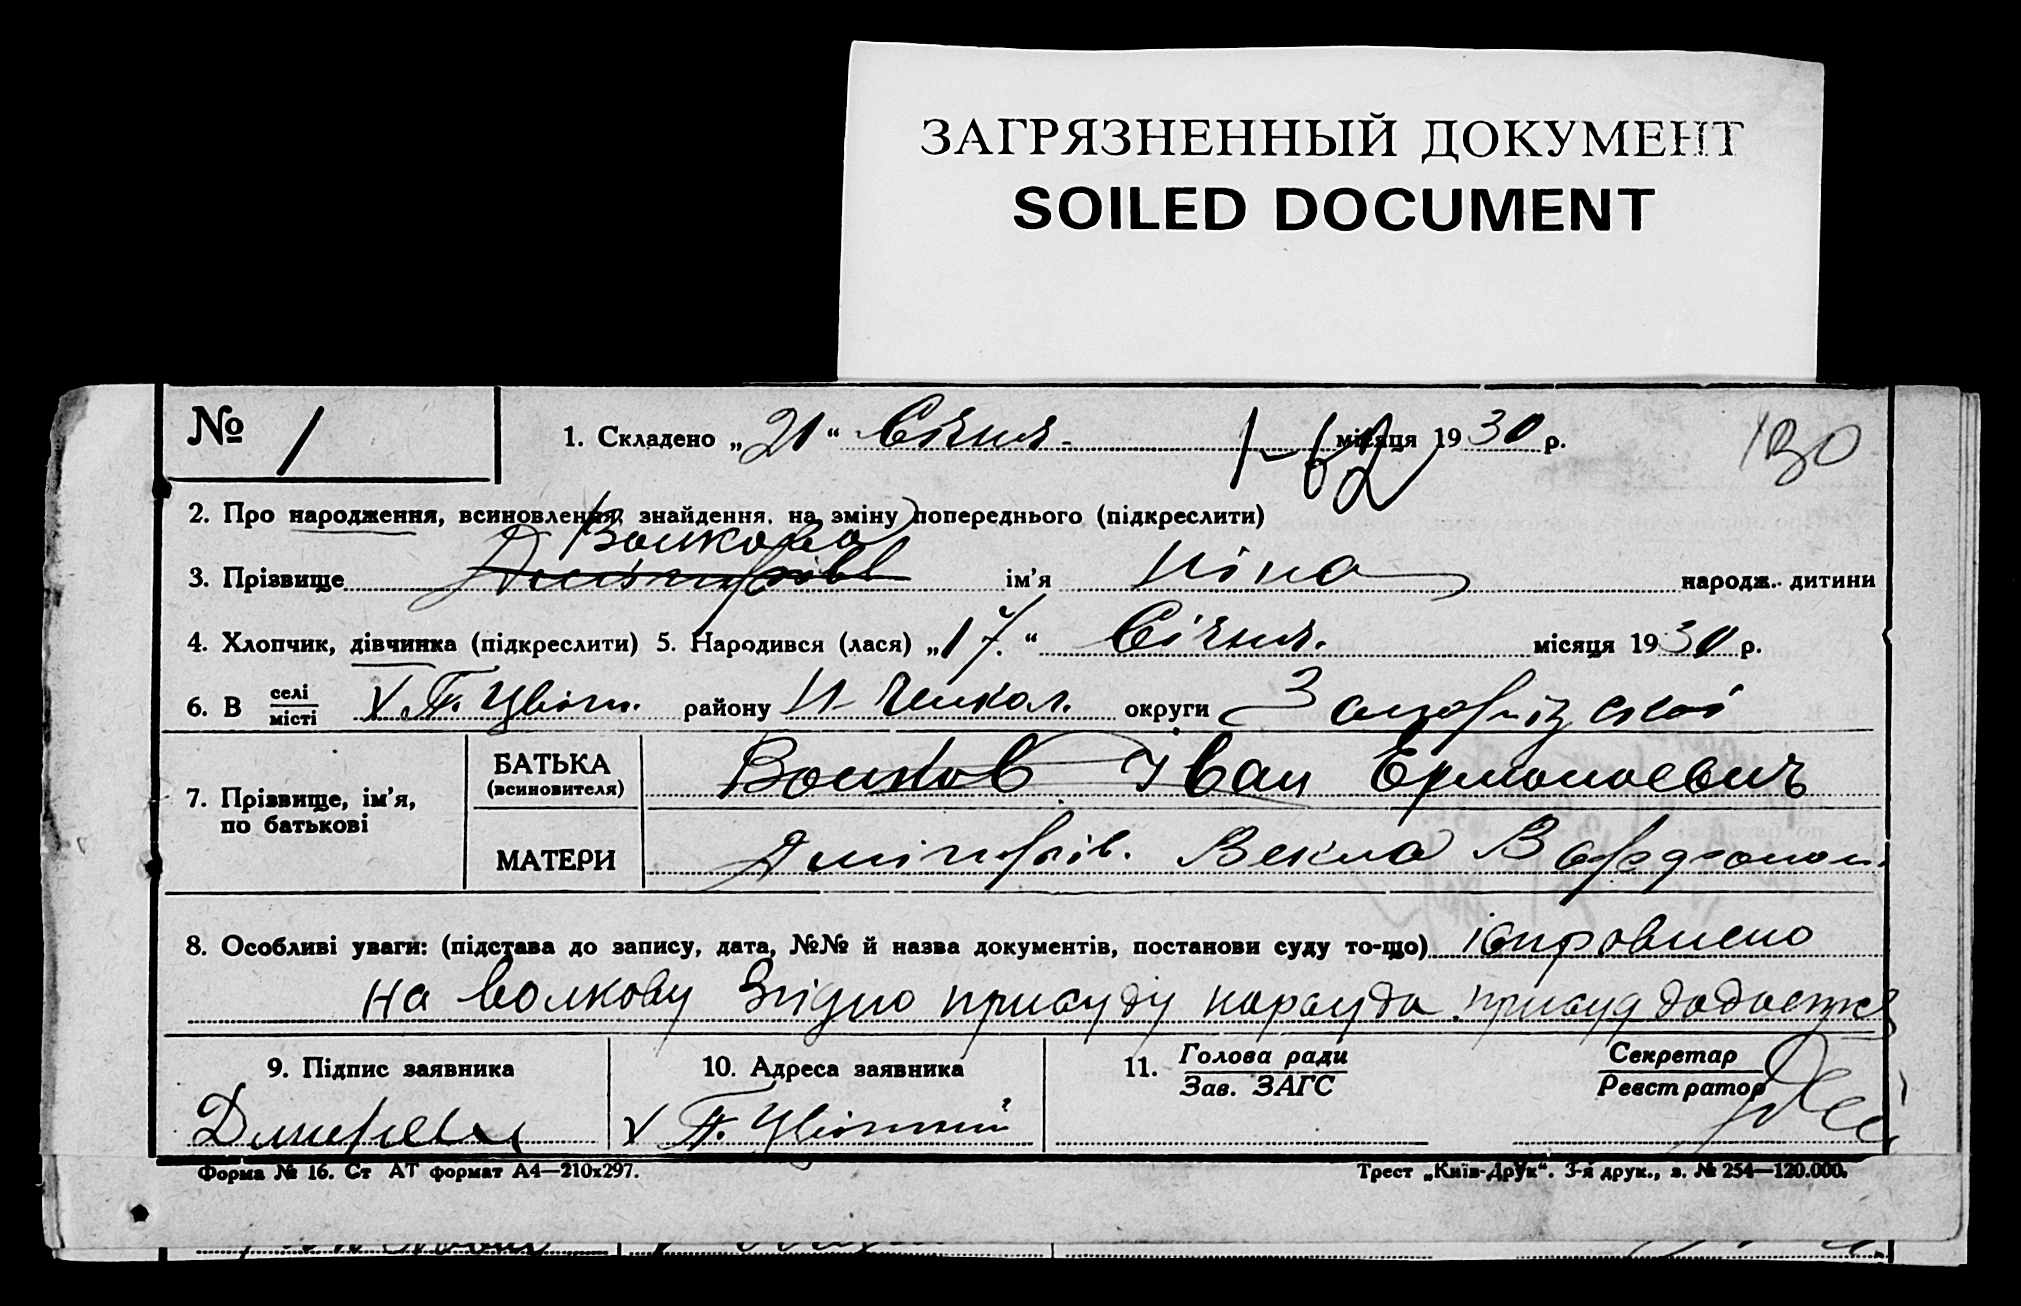 ЗАГРЯЗНЕННЫЙ ДОКУМЕНТ
SOILED DOCUMENT
№ 1
1. Складено „21“ Січня місяця 1930 р.
1-62
130
2. Про народження, всиновлення, знайдення, на зміну попереднього (підкреслити)
Волкова
3. Прізвище Дмітрієв ім'я Ніна народж. дитини
4. Хлопчик, дівчинка (підкреслити) 5. Народився (лася) „17“ Січня. місяця 1930 р.
6. В селі місті V. П. Цвітн. району округи Запорізської
7. Прізвище, ім'я, по батькові
БАТЬКА (всиновителя) Волков Іван
МАТЕРИ Дмітрів. Векла
8. Особливі уваги: (підстава до запису, дата, №№ й назва документів, постанови суду то-що) ісправлено
на Волкову Згідно присуду нарсуда. присуд додається
9. Підпис заявника
10. Адреса заявника
11. Голова ради Зав. ЗАГС
Секретар Реєстратор
V П. Цвітний
Форма № 16. Ст АТ формат А4—210х297.
Трест „Київ-Друк“. 3-я друк., з. № 254—120.000.